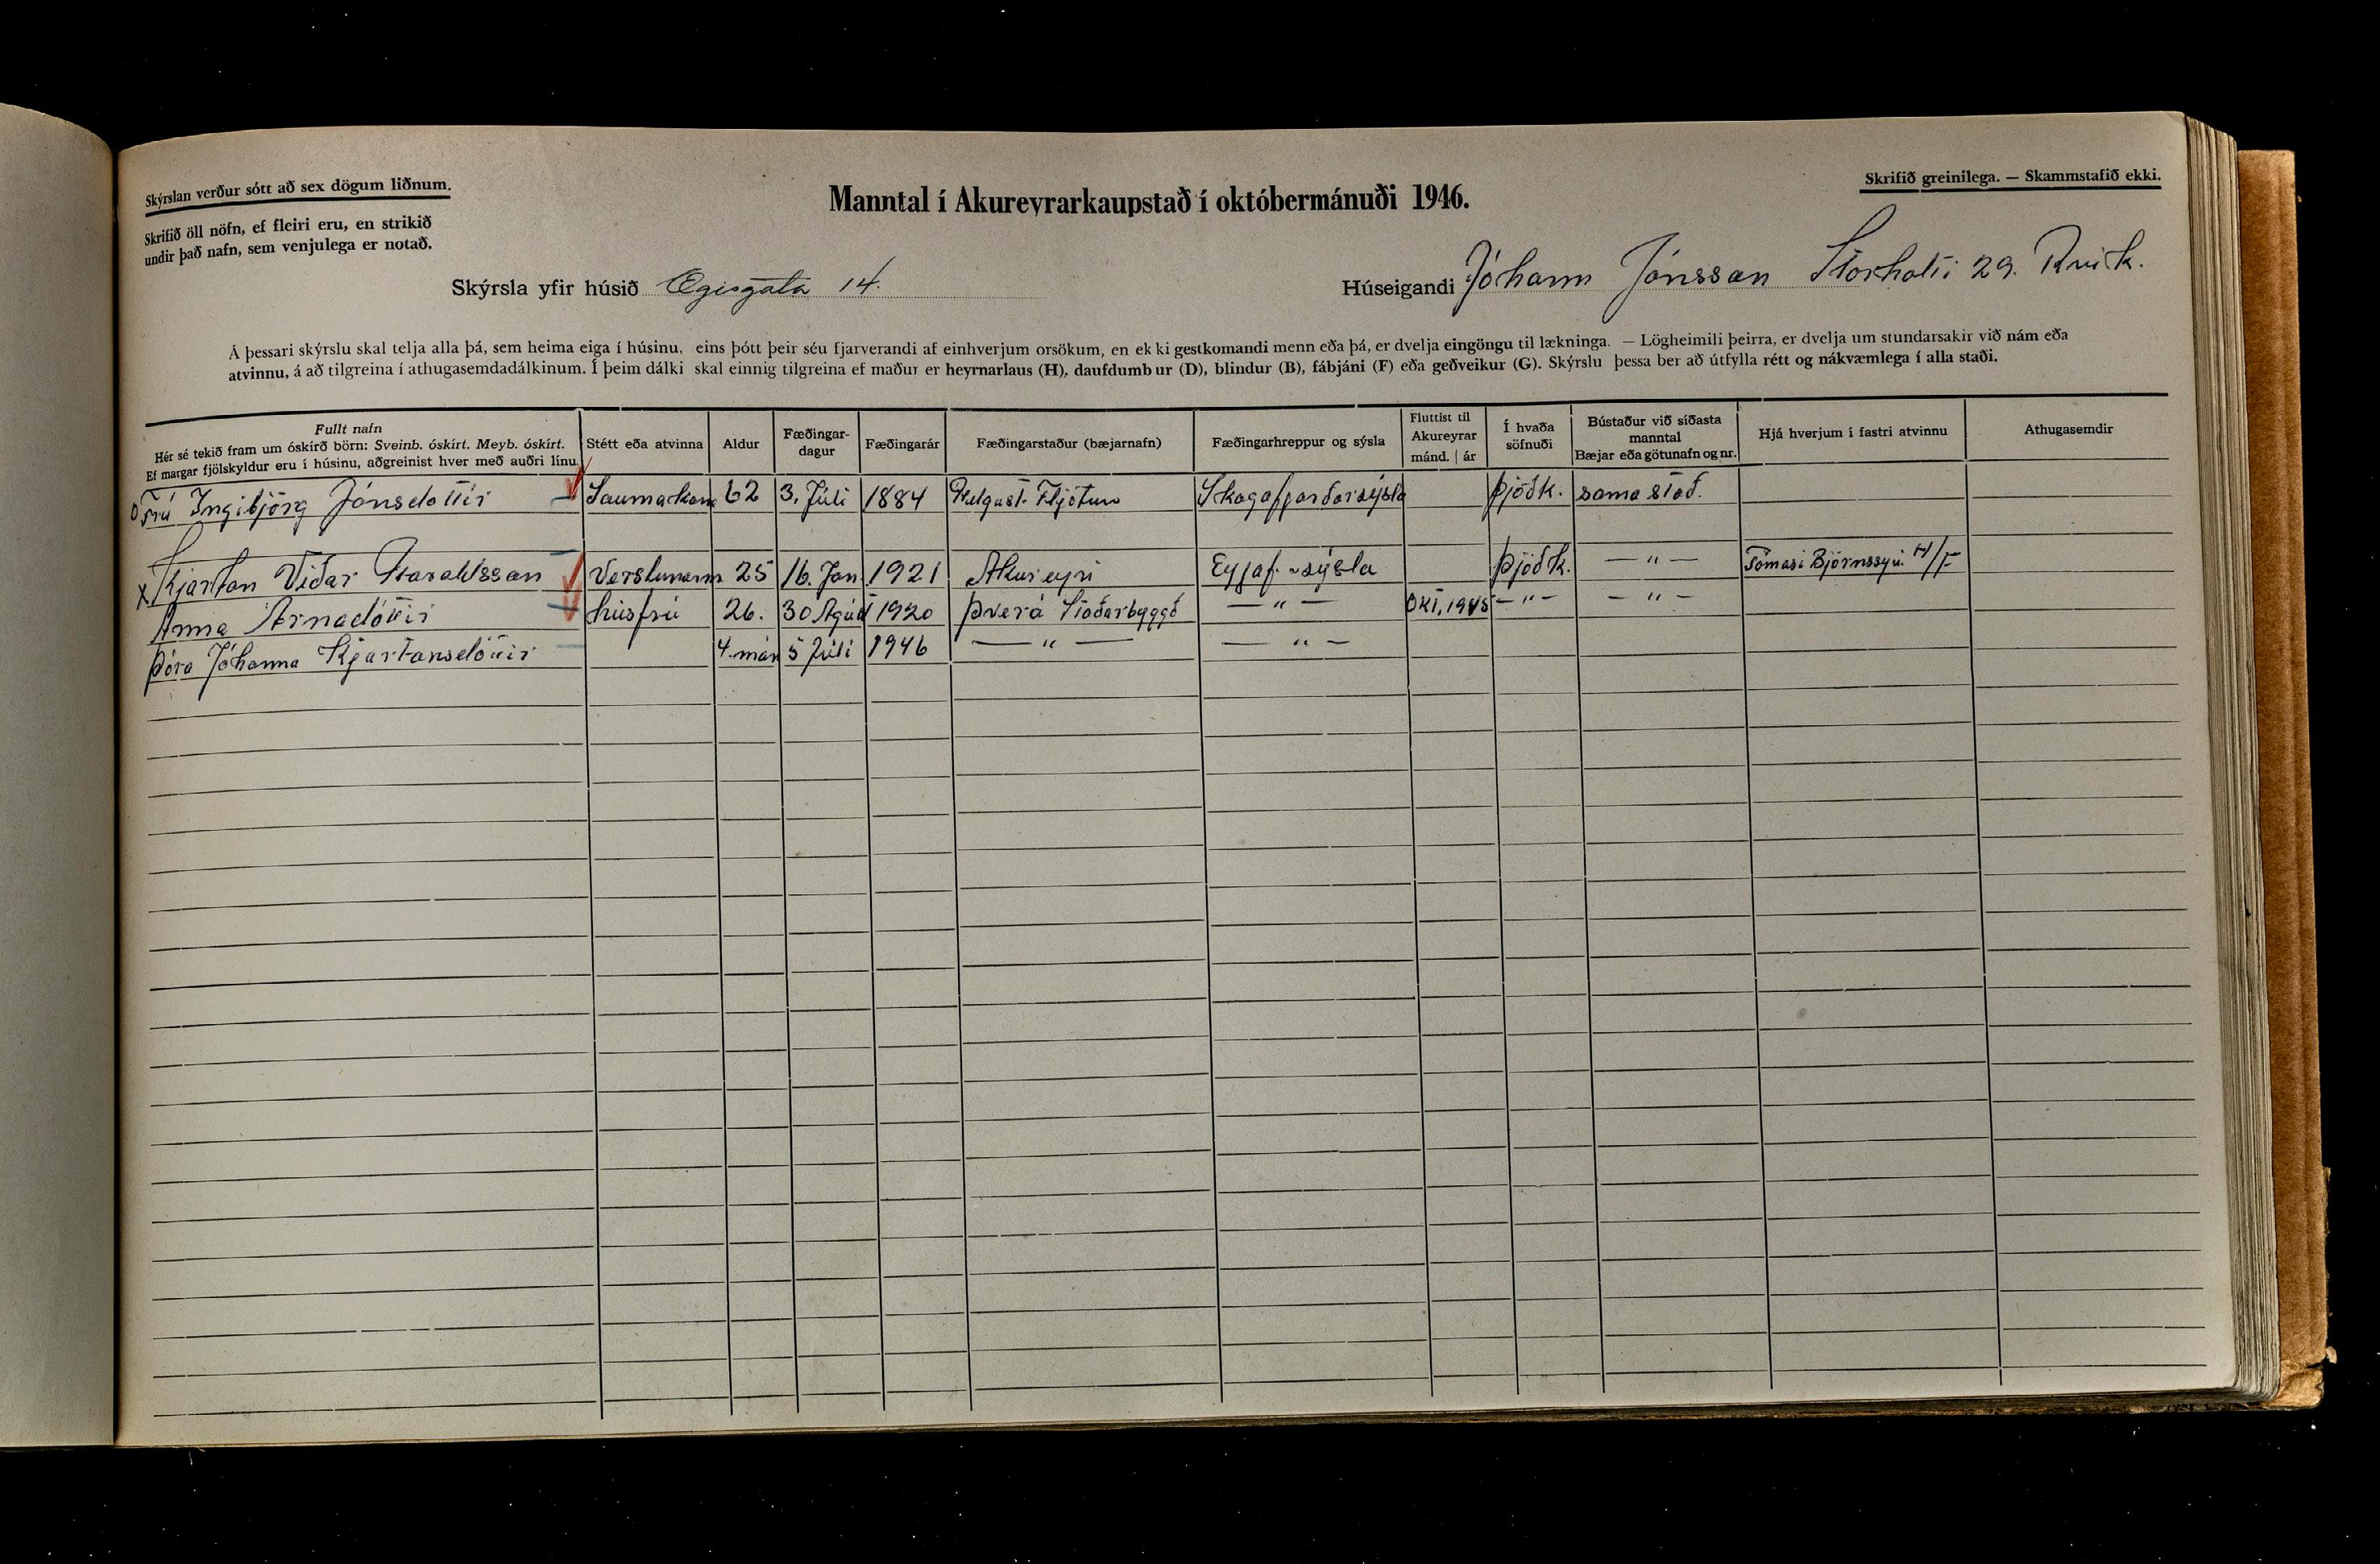 Skýrslan verður sótt að sex dögum liðnum.
Skrifið öll nöfn, ef fleiri eru, en strikið
undir það nafn, sem venjulega er notað.
Manntal í Akureyrarkaupstað í októbermánuði 1946.
Skrifið greinilega. — Skammstafið ekki.
Skýrsla yfir húsið Ægisgata 14.
Húseigandi Jóhann Jónsson Stórholti 29. Rvík.
Á þessari skýrslu skal telja alla þá, sem heima eiga í húsinu, eins þótt þeir séu fjarverandi af einhverjum orsökum, en ekki gestkomandi menn eða þá, er dvelja eingöngu til lækninga. — Lögheimili þeirra, er dvelja um stundarsakir við nám eða
atvinnu, á að tilgreina í athugasemdadálkinum. Í þeim dálki skal einnig tilgreina ef maður er heyrnarlaus (H), daufdumbur (D), blindur (B), fábjáni (F) eða geðveikur (G). Skýrslu þessa ber að útfylla rétt og nákvæmlega í alla staði.
Fullt nafn
Hér sé tekið fram um óskírð börn: Sveinb. óskírt. Meyb. óskírt.
Ef margar fjölskyldur eru í húsinu, aðgreinist hver með auðri línu.
Stétt eða atvinna
Aldur
Fæðingar-
dagur
Fæðingarár
Fæðingarstaður (bæjarnafn)
Fæðingarhreppur og sýsla
Fluttist til
Akureyrar
mánd. | ár
Í hvaða
söfnuði
Bústaður við síðasta
manntal
Bæjar eða götunafn og nr.
Hjá hverjum í fastri atvinnu
Athugasemdir
Frú Ingibjörg Jónsdóttir Saumakona 62 3. Júlí 1884 Fljótum Skagafjarðarsýsla Þjóðk. sama stað.
x Kjartan Viðar Haraldsson Verslunarm 25 16. Jan 1921 Akureyri Eyjaf. sýsla Þjóðk. — " — Tómasi Björnssyni H/F
Anna Árnadóttir húsfrú 26. 30 Ágúst 1920 Þverá Staðarbyggð — " — Okt. 1945 — " — — " —
Þóra Jóhanna Kjartansdóttir 4. mán 5 Júlí 1946 — " — — " —